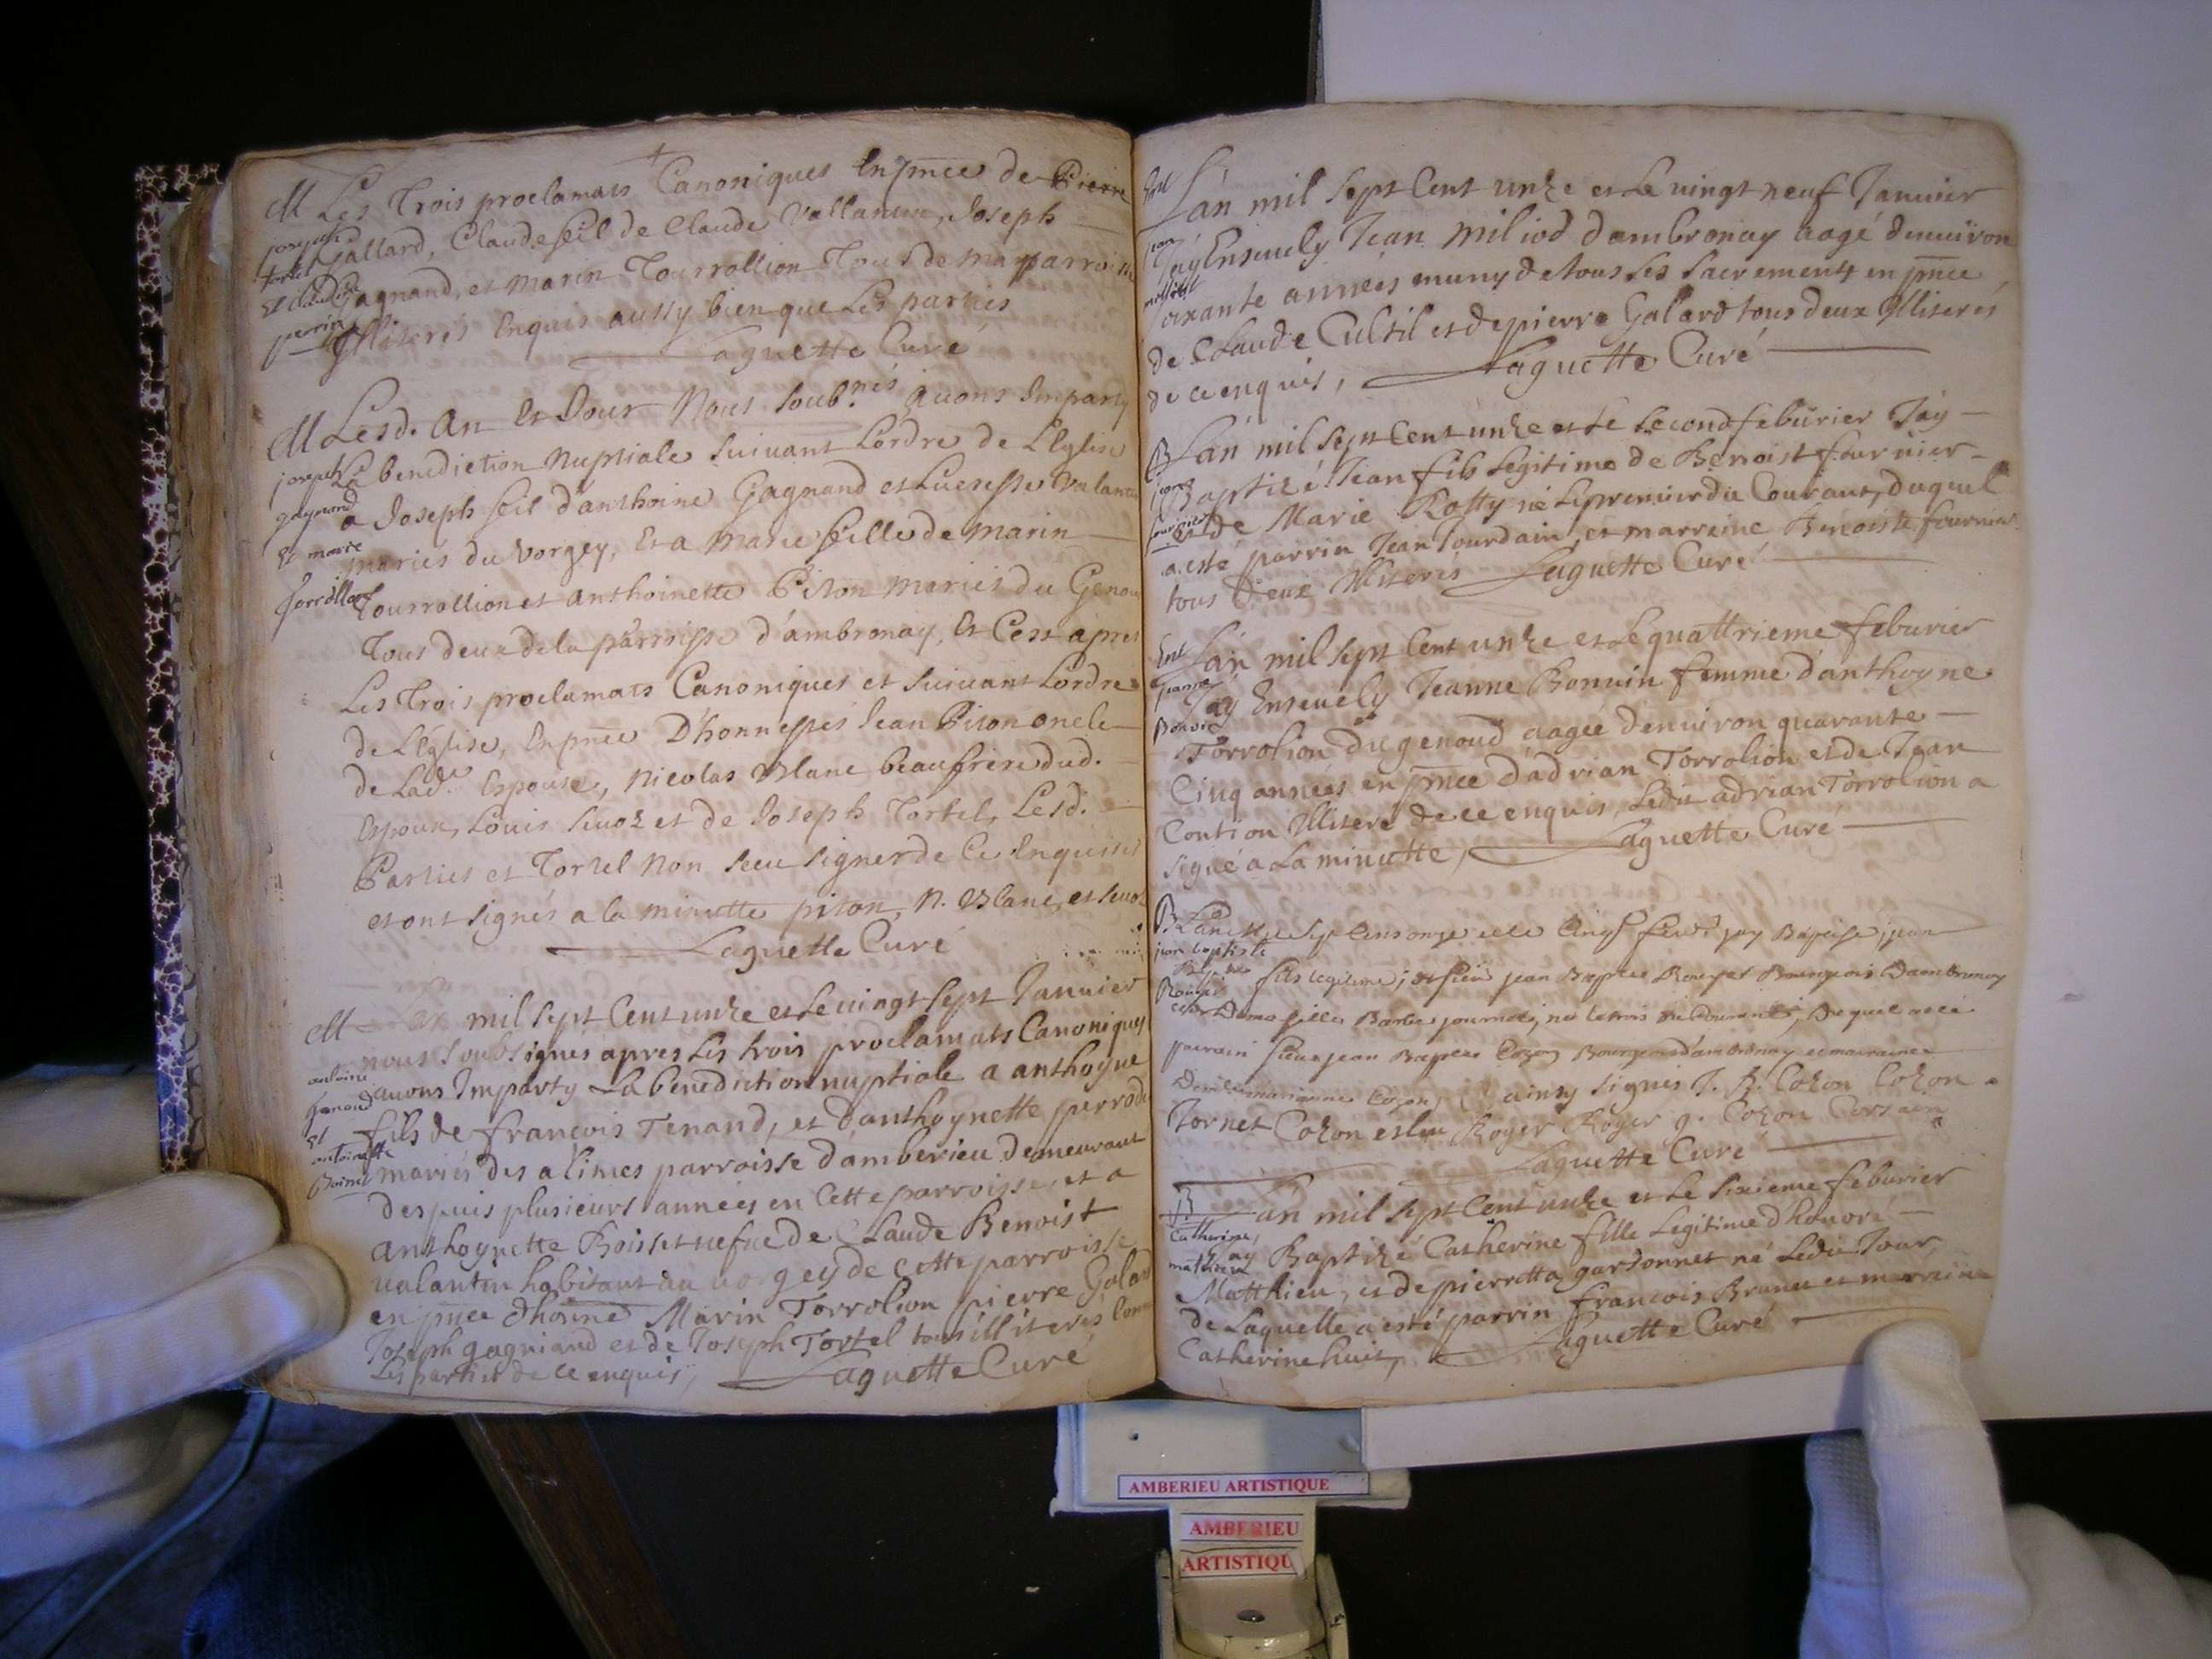 M Les Trois proclamats Canoniques En pnce de Pierre
joseph Gallard, Claude feil de Claude Vallantin, Joseph
tortel Gagnand, et Marin Tourrollion Tous de ma parroisse
Et claudine
perrin Illiterés Enquis aussy bien que Les parties
Laguette Curé
M Lesd. An Et Jour Nous soub.nés avons Imparty
joseph La benediction Nuptiale suivant Lordre de L'Eglise
gagnand a Joseph feil d'anthoine Gagnand et Lucresse Valantin
Et marie mariés du Vorgey, Et a Marie fille de Marin
Torrollion Tourrollion et anthoinette Piton mariés du Genou
Tous deux de la parroisse d'ambronay, Et Cest apres
Les Trois proclamats Canoniques et suivant Lordre
de L'Eglise, En pnce D'honnestes Jean Piton oncle
de Lad.e Espouse, Nicolas Blanc beaufrere dud.
Espoux, Louis Sevoz et de Joseph Tortel, Lesd.
Parties et Tortel Non sceu signer de Ce Enquis
et ont signés a la minutte piton, N. Blanc, et Sevoz
Laguette Curé
M mil sept Cent unze et Le vingt sept Januier
nous soubsignés apres Les trois proclamats Canoniques
antoine avons Imparty La benediction nuptiale a anthoyne
Tenand fils de françois Tenand, et d'anthoynette perrod
Et
antoinette mariés des alimes parroisse d'amberieu demeurant
Boisset despuis plusieurs années en Cette parroisse, et a
anthoynette Boisset vefue de Claude Benoist
valantin habitant au vorgey de cette parroisse
en pnce d'honne Marin Torrolion pierre Galard
Joseph gagniand et de Joseph Tortel tous illiterés Comme
Les parties de ce enquis, Laguette Curé
Ent L'an mil sept Cent unze et Le vingt neuf Januier
jean J'ay Enseuely Jean Miliod d'ambronay aagé denuiron
milliod soixante années muny de tous ses sacrements en pnce
de Claude Cultil et de pierre Galard tous deux Illiterés
de ce enquis, Laguette Curé
B L'an mil sept Cent unze et Le second feburier J'ay
jean Baptizé Jean fils Legitime de Benoist fournier
fournier et de Marie Rotty né Le premier du Courant, duquel
a esté parrin Jean Jourdain, et marreine Benoiste fournier
tous deux Illiterés Laguette Curé
Ent L'an mil sept Cent unze et Le quattrieme feburier
jeanne J'ay Enseuely Jeanne Bonuin femme d'anthoyne
Bonvin Torrolion du genoud aagée denuiron quarante
Cinq années en pnce d'adrian Torrolion et de Jean
Contion Illiteré de ce enquis, Ledit adrian Torrolion a
signé a La minutte, Laguette Curé
B L'an mil sept Cens onze et le Cinq feur. jay Baptise jean
jean baptiste
Baptiste fils legitime de sieur jean Baptiste Bourgeois D'ambronay
et de Damoiselle Barbe journet, né le trois du Courant, Duquel a esté
parrain sieur jean Baptiste Cozon Bourgeois d'ambronay et marraine
Demoiselle marianne Cozon, ainsy signés J. B. Cozon Cozon
Tornet Cozon eslu Royer Royer g. Cozon Corsain
Laguette Curé
B L'an mil sept Cent unze et Le sixieme feburier
Catherine J'ay Baptizé Catherine fille Legitime d'honoré
mathieu Matthieu, et de pierrotta garsonnet né Ledit Jour,
de Laquelle a esté parrin françois Brunet et marreine
Catherine huit, Laguette Curé
AMBERIEU ARTISTIQUE
AMBERIEU
ARTISTIQU